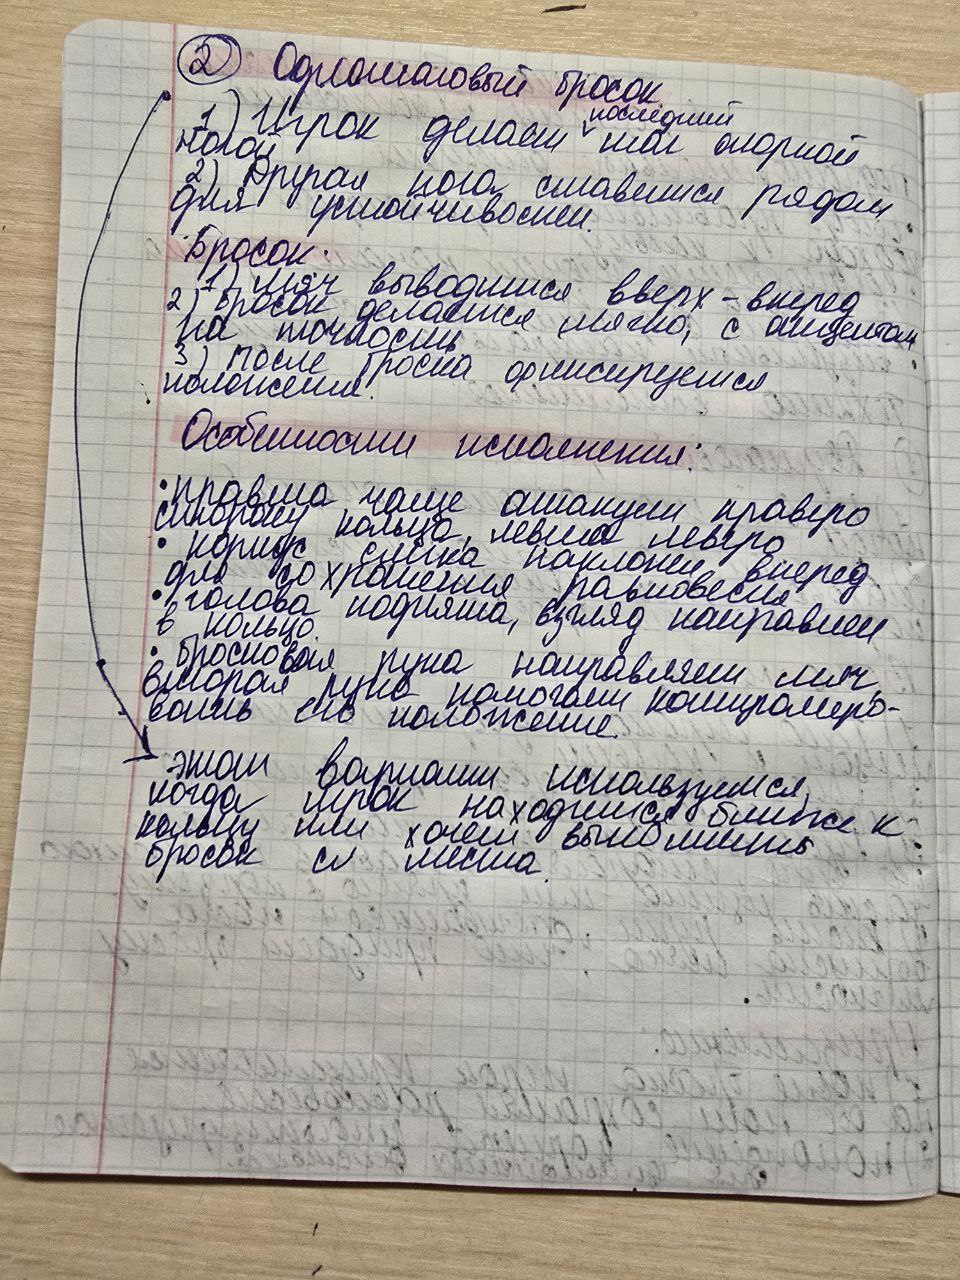 2 Одношаговый бросок
последний
1) Игрок делает шаг опорной
ногой
2) Другая нога ставится рядом
для устойчивости.
Бросок:
1) Мяч выводится вверх-вперед
2) Бросок делается мягко, с акцентом
на точность
3) После броска фиксируется
положения.
Особенности исполнения:
• правша чаще атакует правую
сторону кольца, левша левую
• корпус слегка наклонен вперед
для сохранения равновесия
• голова поднята, взгляд направлен
в кольцо.
• бросковая рука направляет мяч,
вторая рука помогает контролиро-
вать его положение.
этот вариант используется,
когда игрок находится ближе к
кольцу или хочет выполнить
бросок с места.